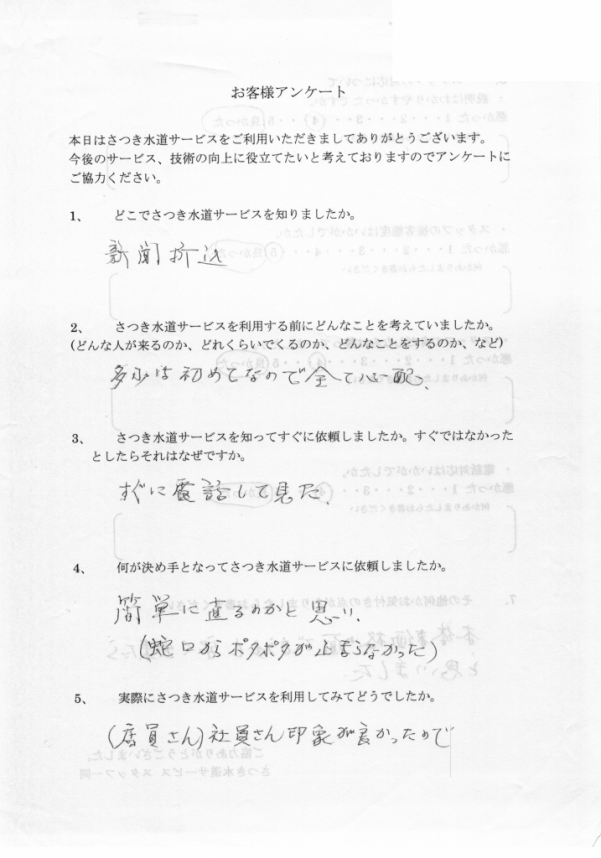 お客様アンケート
本日はさつき水道サービスをご利用いただきましてありがとうございます。
今後のサービス、技術の向上に役立てたいと考えておりますのでアンケートに
ご協力ください。
1、 どこでさつき水道サービスを知りましたか。
新聞折込
2、 さつき水道サービスを利用する前にどんなことを考えていましたか。
(どんな人が来るのか、どれくらいでくるのか、どんなことをするのか、など)
は初めてなので全て心配、
3、 さつき水道サービスを知ってすぐに依頼しましたか。すぐではなかった
としたらそれはなぜですか。
すぐに電話して見た、
4、 何が決め手となってさつき水道サービスに依頼しましたか。
簡単に直るのかと思い、
(蛇口からポタポタが止まらなかった)
5、 実際にさつき水道サービスを利用してみてどうでしたか。
(店員さん)社員さん印象が良かったので